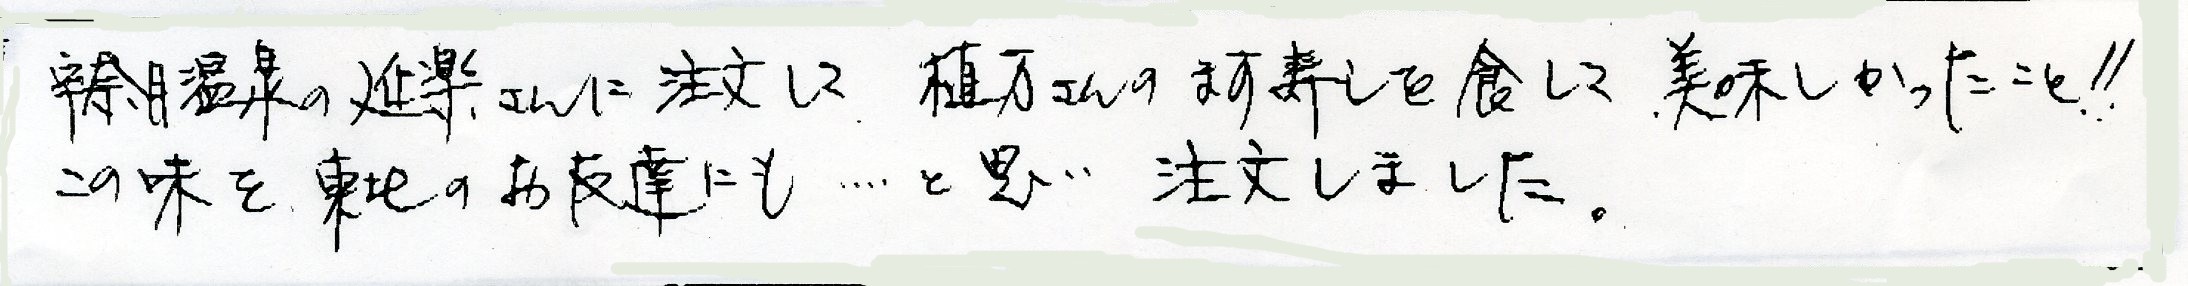 宇奈月温泉の延楽さんに注文して 植万さんのます寿しを食して 美味しかったこと!!
この味を東北のお友達にも….と思い 注文しました。